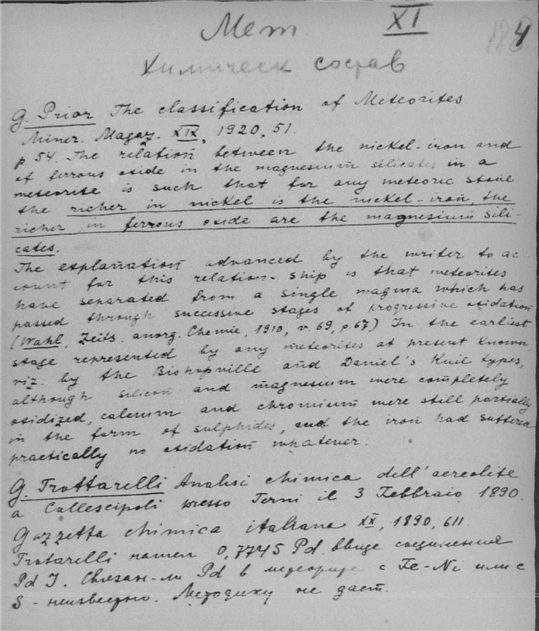 Мет XI
4
Химическ состав
G. Prior The classification of Meteorites
Miner. Magaz. XIX, 1920, 51.
p 54. The relation between the nickel-iron and
of ferrous oxide in the magnesium silicates in a
meteorite is such that for any meteoric stone
the richer in nickel is the nickel-iron, the
richer in ferrous oxide are the magnesium sili-
cates.
The explanation advanced by the writer to ac-
count for this relation-ship is that meteorites
have separated from a single magma which has
passed through successive stages of progressive oxidation
(Wahl, Zeits. anorg. Chemie, 1910, v. 69, p 67) In the earliest
stage represented by any meteorites at present known
viz. by the Bishopville and Daniel's Kuil types,
although silicon and magnesium were completely
oxidized, calcium and chromium were still partially
in the form of sulphides, and the iron had suffered
practically no oxidation whatever.
G. Trottarelli Analisi chimica dell'aereolite
a Collescipoli presso Terni il 3 Febbraio 1890.
Gazzetta chimica italiana XX, 1890, 611.
Trotarelli нашел 0,7745 Pd ввиде соединения
Pd J. Связан-ли Pd в метеорите с Fe-Ni или с
S - неизвестно. Методику не дает.